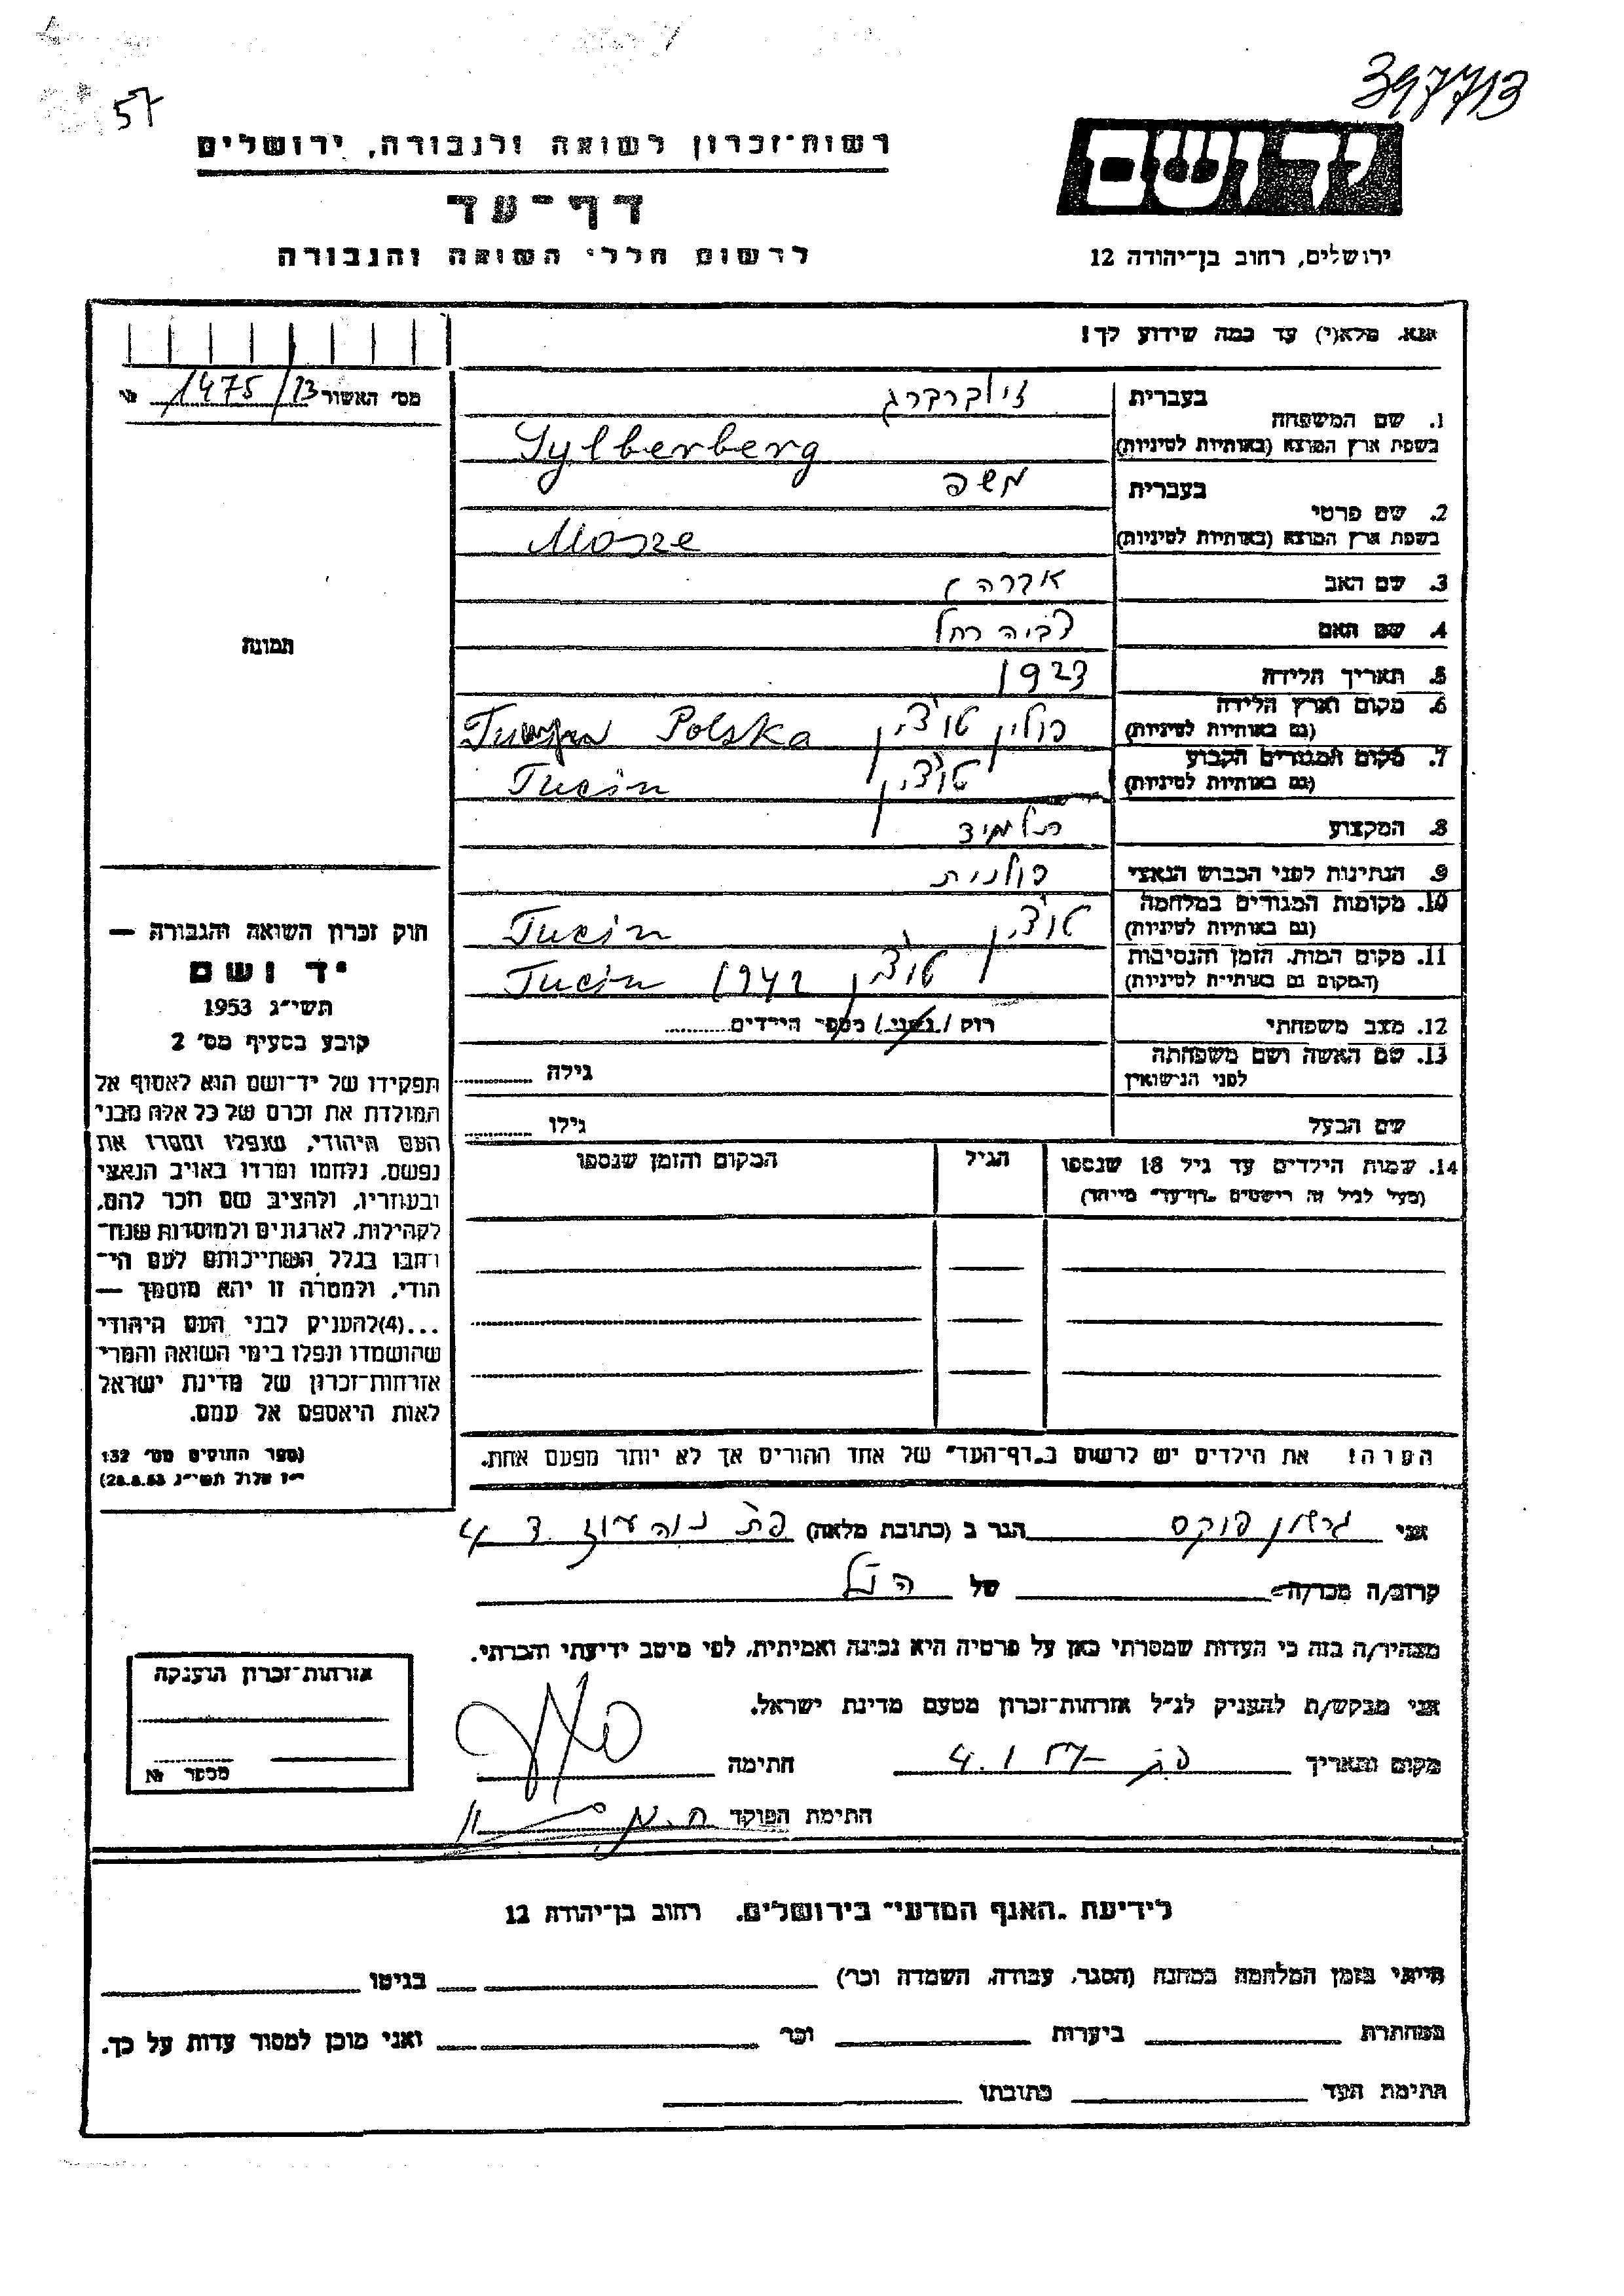 397713
57
רשות־זכרון לשואה ולגבורה, ירושלים
יד ושם
דף־עד
ירושלים, רחוב בן־יהודה 12
לרשום חללי השואה והגבורה
אנא, מלא(י) עד כמה שידוע לך!
מס׳ האשור 1475/73 №
בעברית זילברברג
1. שם המשפחה
בשפת ארץ המוצא (באותיות לטיניות) Sylberberg
בעברית משה
2. שם פרטי
בשפת ארץ המוצא (באותיות לטיניות) Mosze
3. שם האב אברהם
4. שם האם צביה רחל
5. תאריך הלידה 1923
6. מקום וארץ הלידה
(גם באותיות לטיניות) פולין טוצ׳ין Polska
7. מקום המגורים הקבוע
(גם באותיות לטיניות) טוצ׳ין Tucin
8. המקצוע תלמיד
9. הנתינות לפני הכבוש הנאצי פולנית
10. מקומות המגורים במלחמה
(גם באותיות לטיניות) טוצ׳ין Tucin
11. מקום המות, הזמן והנסיבות
(המקום גם באותיות לטיניות) טוצ׳ין 1942 Tucin
12. מצב משפחתי רווק / נשוי / מספר הילדים
13. שם האשה ושם משפחתה
לפני הנישואין גילה
שם הבעל גילו
14. שמות הילדים עד גיל 18 שנספו הגיל המקום והזמן שנספו
(מעל לגיל זה רושמים „דף־עד״ מיוחד)
הערה! את הילדים יש לרשום ב„דף־העד״ של אחד ההורים אך לא יותר מפעם אחת.
תמונה
חוק זכרון השואה והגבורה —
יד ושם
תשי״ג 1953
קובע בסעיף מס׳ 2
תפקידו של יד־ושם הוא לאסוף אל
המולדת את זכרם של כל אלה מבני
העם היהודי, שנפלו ומסרו את
נפשם, נלחמו ומרדו באויב הנאצי
ובעוזריו, ולהציב שם וזכר להם,
לקהילות, לארגונים ולמוסדות שנח־
רבו בגלל השתייכותם לעם הי־
הודי, ולמטרה זו יהא מוסמך —
...(4)להעניק לבני העם היהודי
שהושמדו ונפלו בימי השואה והמרי
אזרחות־זכרון של מדינת ישראל
לאות היאספם אל עמם.
(ספר החוקים מס׳ 132
י״ז אלול תשי״ג 28.8.53)
אני גרשון פוקס הגר ב (כתובת מלאה) פת נוה עוז ד 4
קרוב/ה מכר/ה של הנ״ל
מצהיר/ה בזה כי העדות שמסרתי כאן על פרטיה היא נכונה ואמיתית, לפי מיטב ידיעתי והכרתי.
אני מבקש/ת להעניק לנ״ל אזרחות־זכרון מטעם מדינת ישראל.
מקום ותאריך 4.1.57 חתימה
חתימת הפוקד
אזרחות־זכרון הוענקה
מספר №
לידיעת „האגף המדעי״ בירושלים, רחוב בן־יהודה 12
הייתי בזמן המלחמה במחנה (הסגר, עבודה, השמדה וכו׳) בגיטו
במחתרת ביערות וכו׳ ואני מוכן למסור עדות על כך.
חתימת העד כתובתו